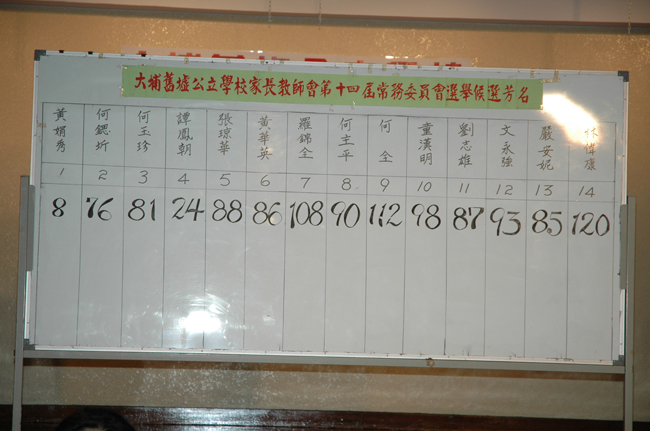 大埔舊墟公立學校家長教師會第十四屆常務委員會選舉候選芳名
黃娟秀 何鍶圻 何玉珍 譚鳳朝 張琼華 黃華英 羅錦全 何主平 何全 童漢明 劉志雄 文永強 嚴安妮 林偉康
1 2 3 4 5 6 7 8. 9. 10 11. 12 13 14
8 76 81 24 88 86 108 90 112 98 87 93 85 120